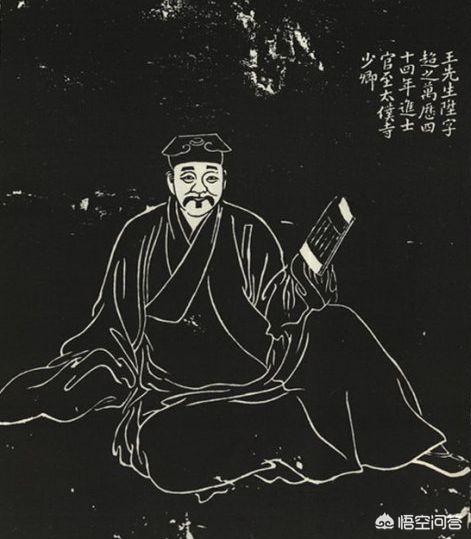 王先生陞字
超之萬歷四
十四年進士
官至太僕寺
少卿
悟空问答